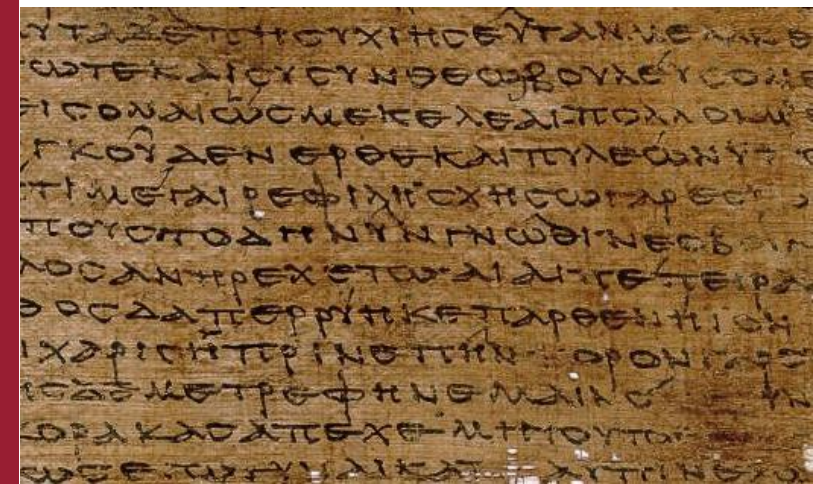 ΥΤΑΔΕΠΗϹΥΧΙΗϹΕΥΤΑΝΜΕΛΑΝΘ
ΓΩΤΕΚΑΙϹΥϹΥΝΘΕΩΒΟΥΛΕΥϹΟΜΕ
ΕΙϹΟΜΑΙΩϹΜΕΚΕΛΕΑΙ·ΠΟΛΛΟΝΜΕ
ΓΚΟΥΔΕΝΕΡΘΕΚΑΙΠΥΛΕΩΝΥΠΟ
ΤΙΜΕΓΑΙΡΕΦΙΛΗ·ϹΧΗϹΩΓΑΡΕϹ
ΠΟΥϹΤΟΔΗΝΥΝΓΝΩΘΙ·ΝΕΟΒ
ΛΟϹΑΝΗΡΕΧΕΤΩ·ΑΙΑΙ·ΠΕΠΕΙΡΑ
ΘΟϹΔΑΠΕΡΡΥΗΚΕΠΑΡΘΕΝΗΙΟΝ
ΙΧΑΡΙϹΗΠΡΙΝΕΠΗΝ· ΟΡΟΝΓΑΡΟ
ΗϹΔΕΜΕΤΡΕΦΗΝΕΜΑΙΝΟ ΥΝ
ΚΟΡΑΚΑϹΑΠΕΧΕ·ΜΗ ΤΟΥΤΟ